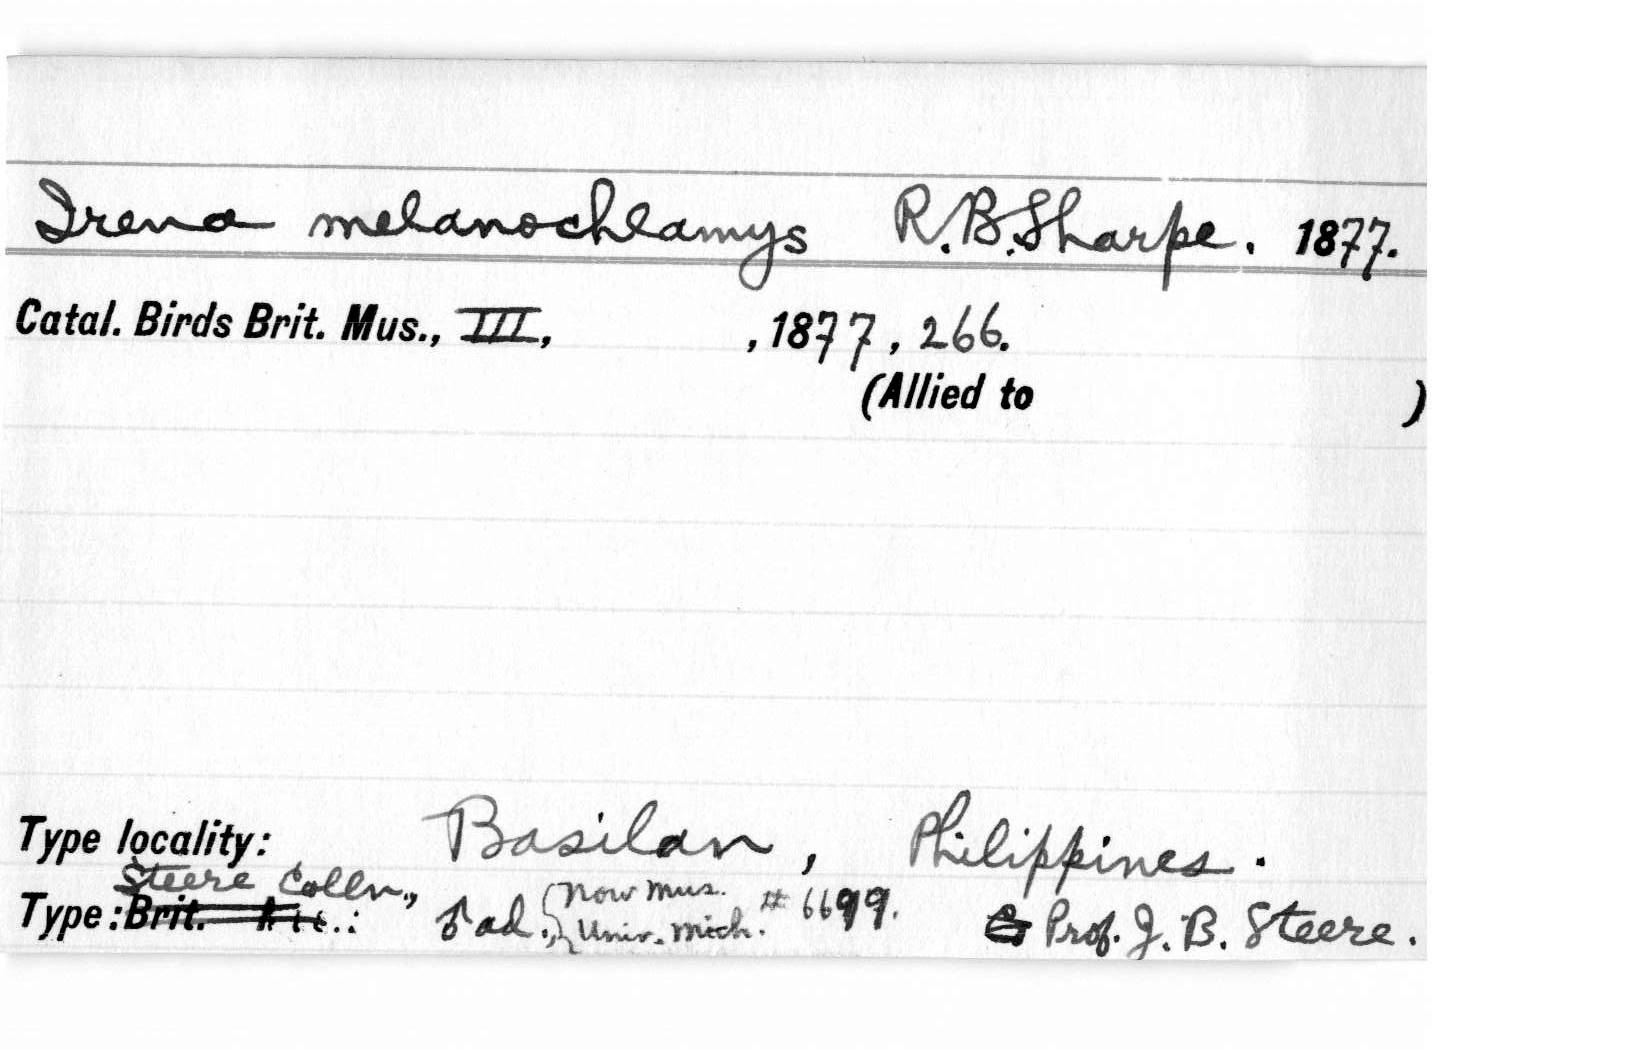 Irena melanochlamys R.B.Sharpe. 1877.
Catal. Birds Brit. Mus., III, , 1877, 266.
(Allied to )
Type locality: Basilan, Philippines.
Steere Colln.,
Type: Brit. ♂ad., (Now Mus. Univ. Mich. # 6699. Prof. J. B. Steere.